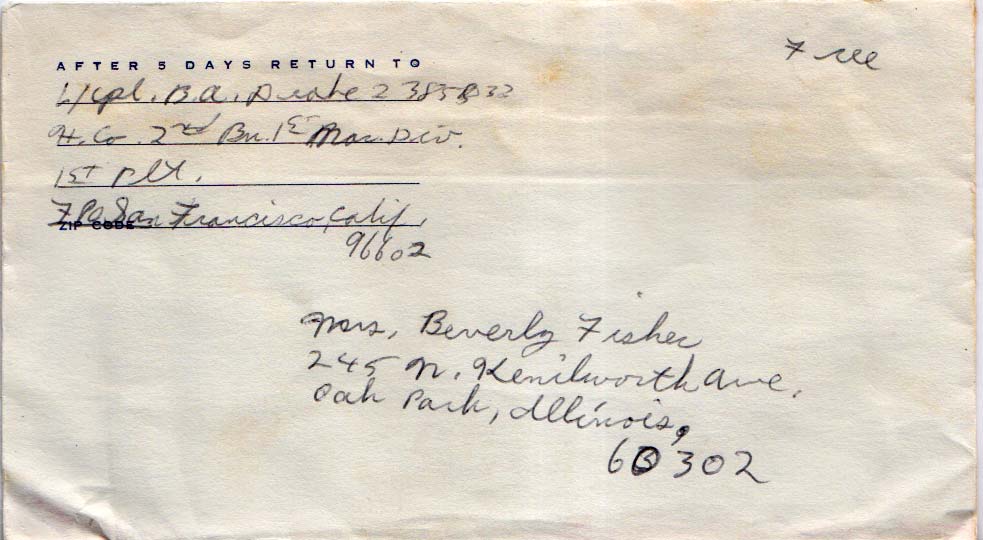 Free
AFTER 5 DAYS RETURN TO
L/cpl. B.A. 2385832
H. Co. 2nd Bn. 1st Mar. Div.
1st Plt.
F.P.O. San Francisco, Calif.
ZIP CODE
96602
Mrs. Beverly Fisher
245 N. Kenilworth Ave,
Oak Park, Illinois,
60302